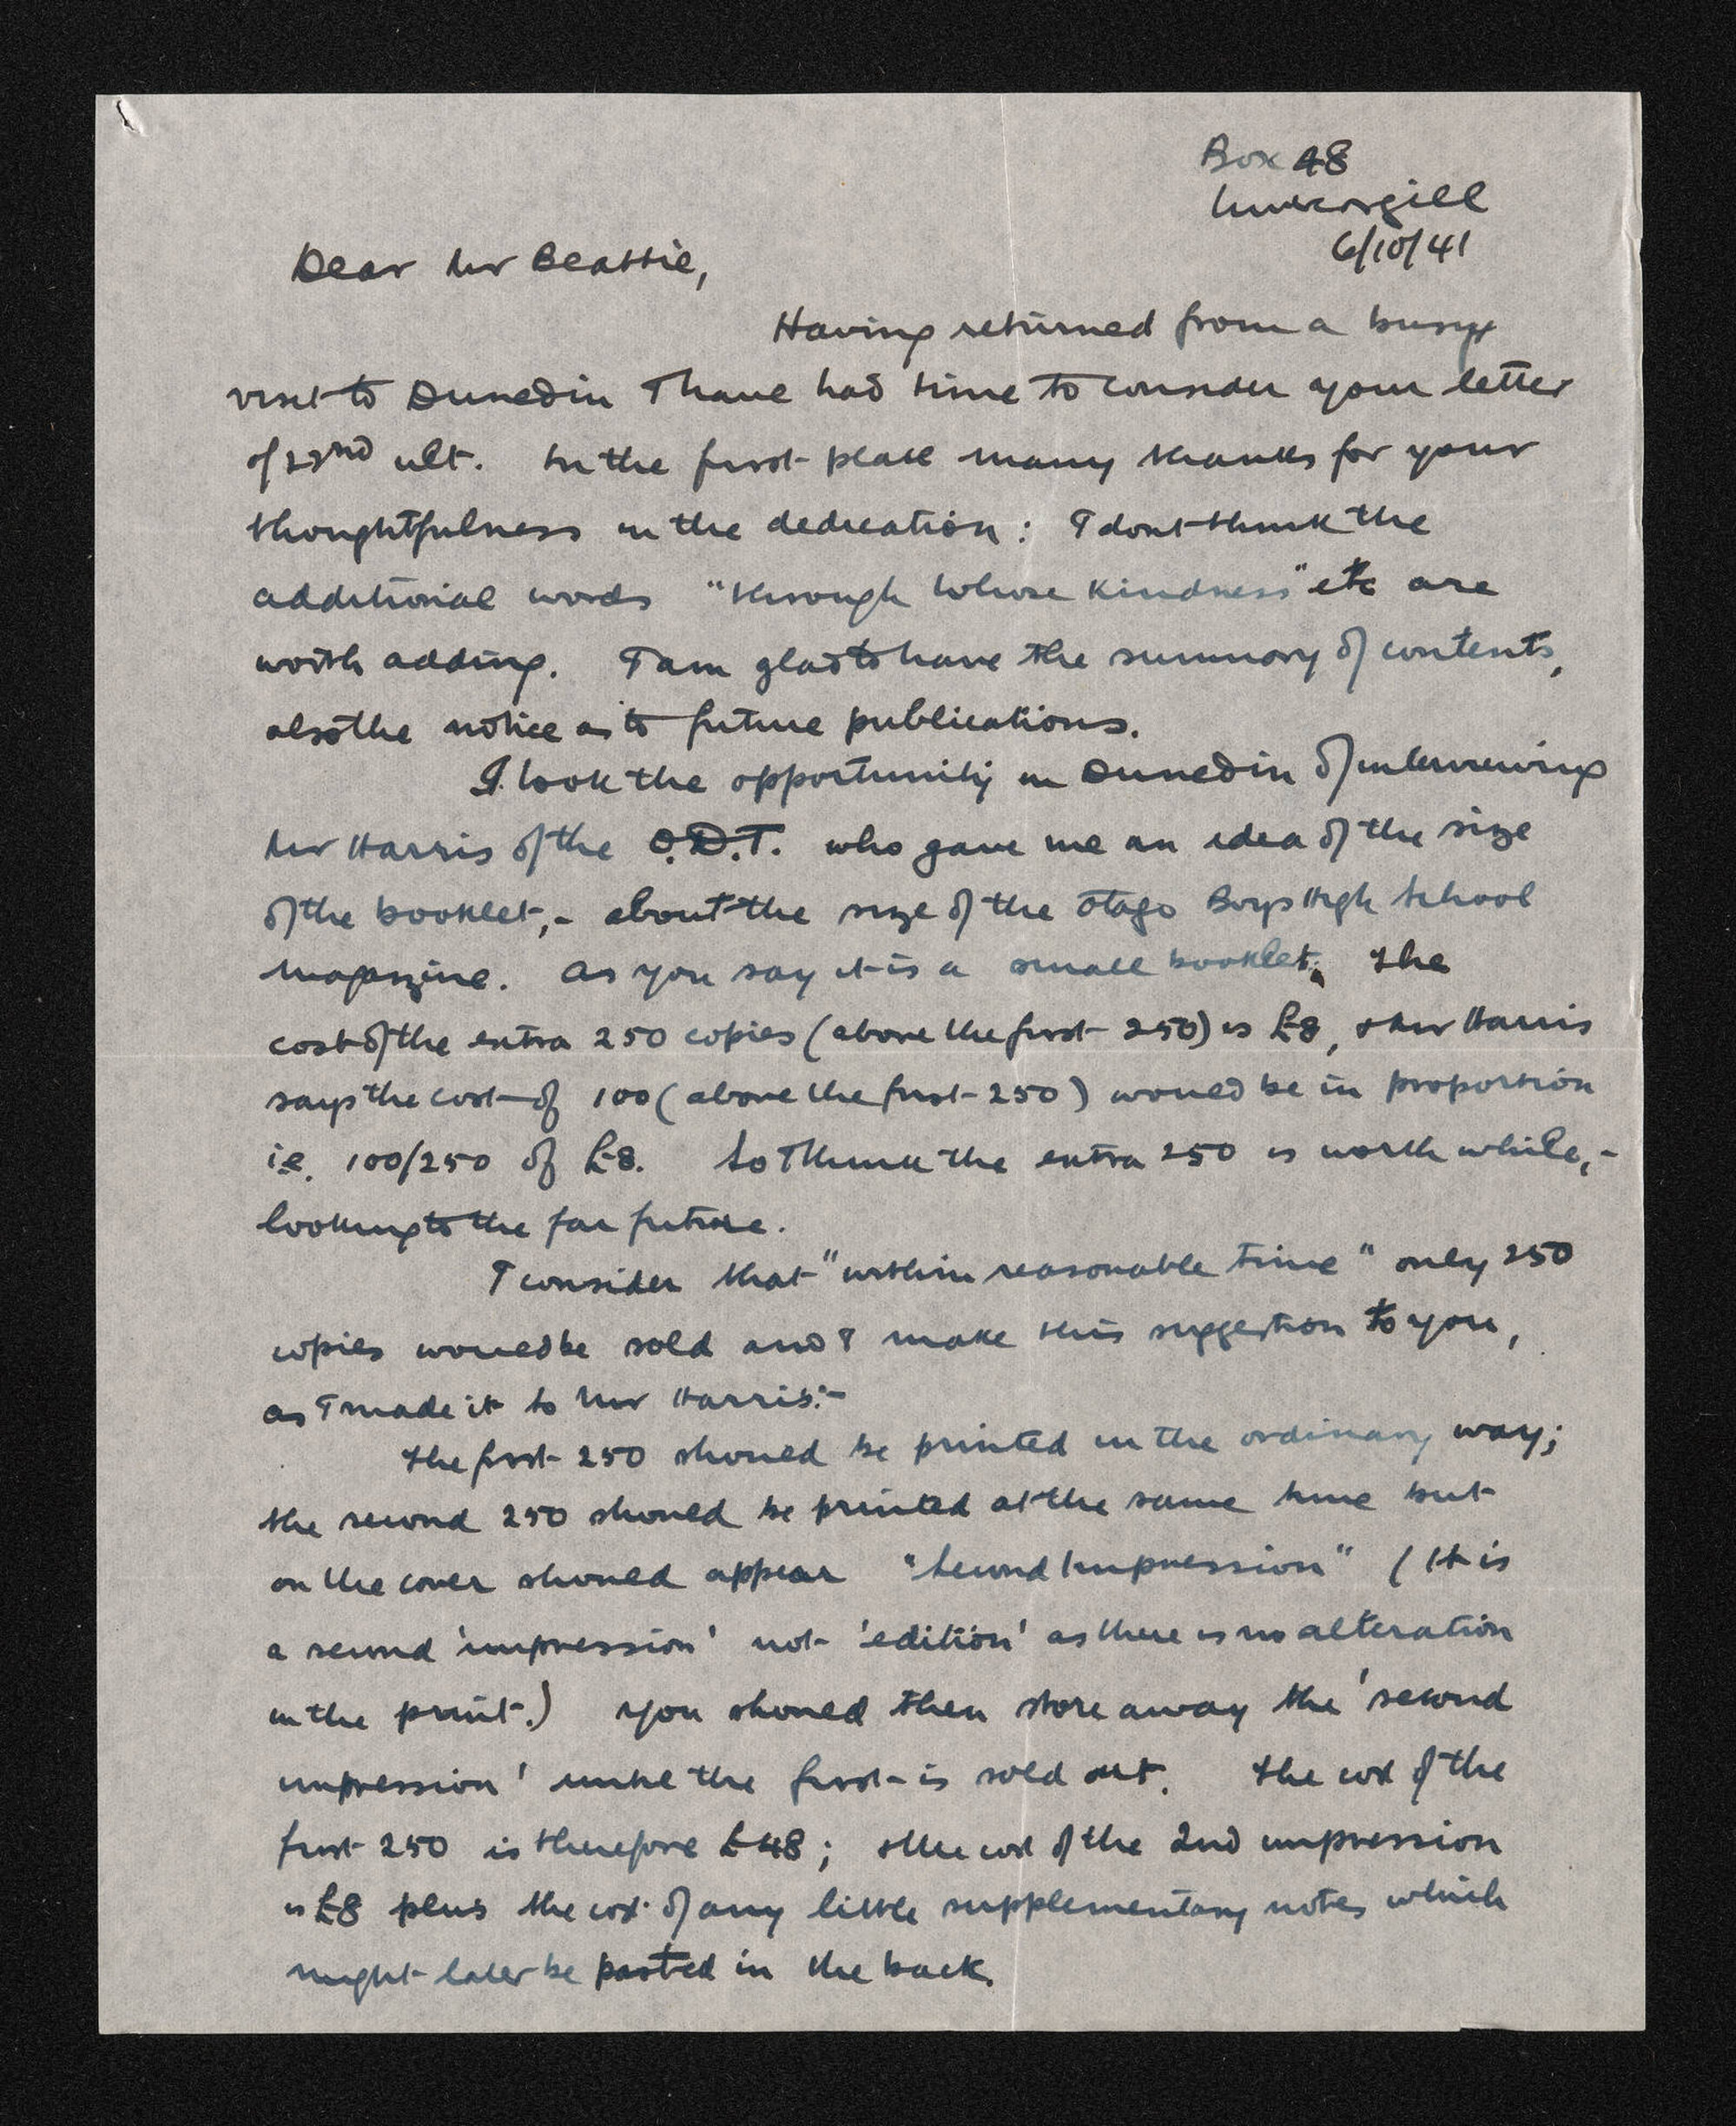 Box 48
Invercargill
6/10/41
Dear Mr Beattie,
Having returned from a busy
visit to Dunedin I have had time to consider your letter
of 22nd ult. In the first place many thanks for your
thoughtfulness in the dedication: I dont think the
additional words "through whose kindness" etc are
worth adding. I am glad to have the summary of contents,
also the notice as to future publications.
I took the opportunity in Dunedin of interviewing
Mr Harris of the O.D.T. who gave me an idea of the size
of the booklet,- about the size of the Otago Boys High School
magazine. As you say it is a small booklet. The
cost of the extra 250 copies (above the first 250) is £8, & Mr Harris
says the cost of 100 (above the first 250) would be in proportion
i.e. 100/250 of £8. So I think the extra 250 is worth while,-
looking to the far future.
I consider that "within reasonable time" only 250
copies would be sold and I make this suggestion to you,
as I made it to Mr Harris:-
The first 250 should be printed in the ordinary way;
the second 250 should be printed at the same time but
on the cover should appear "Second Impression" (It is
a second 'impression' not 'edition' as there is no alteration
in the print.) You should then store away the 'second
impression' until the first is sold out. The cost of the
first 250 is therefore £48; & the cost of the 2nd impression
is £8 plus the cost of any little supplementary notes which
might later be pasted in the back.